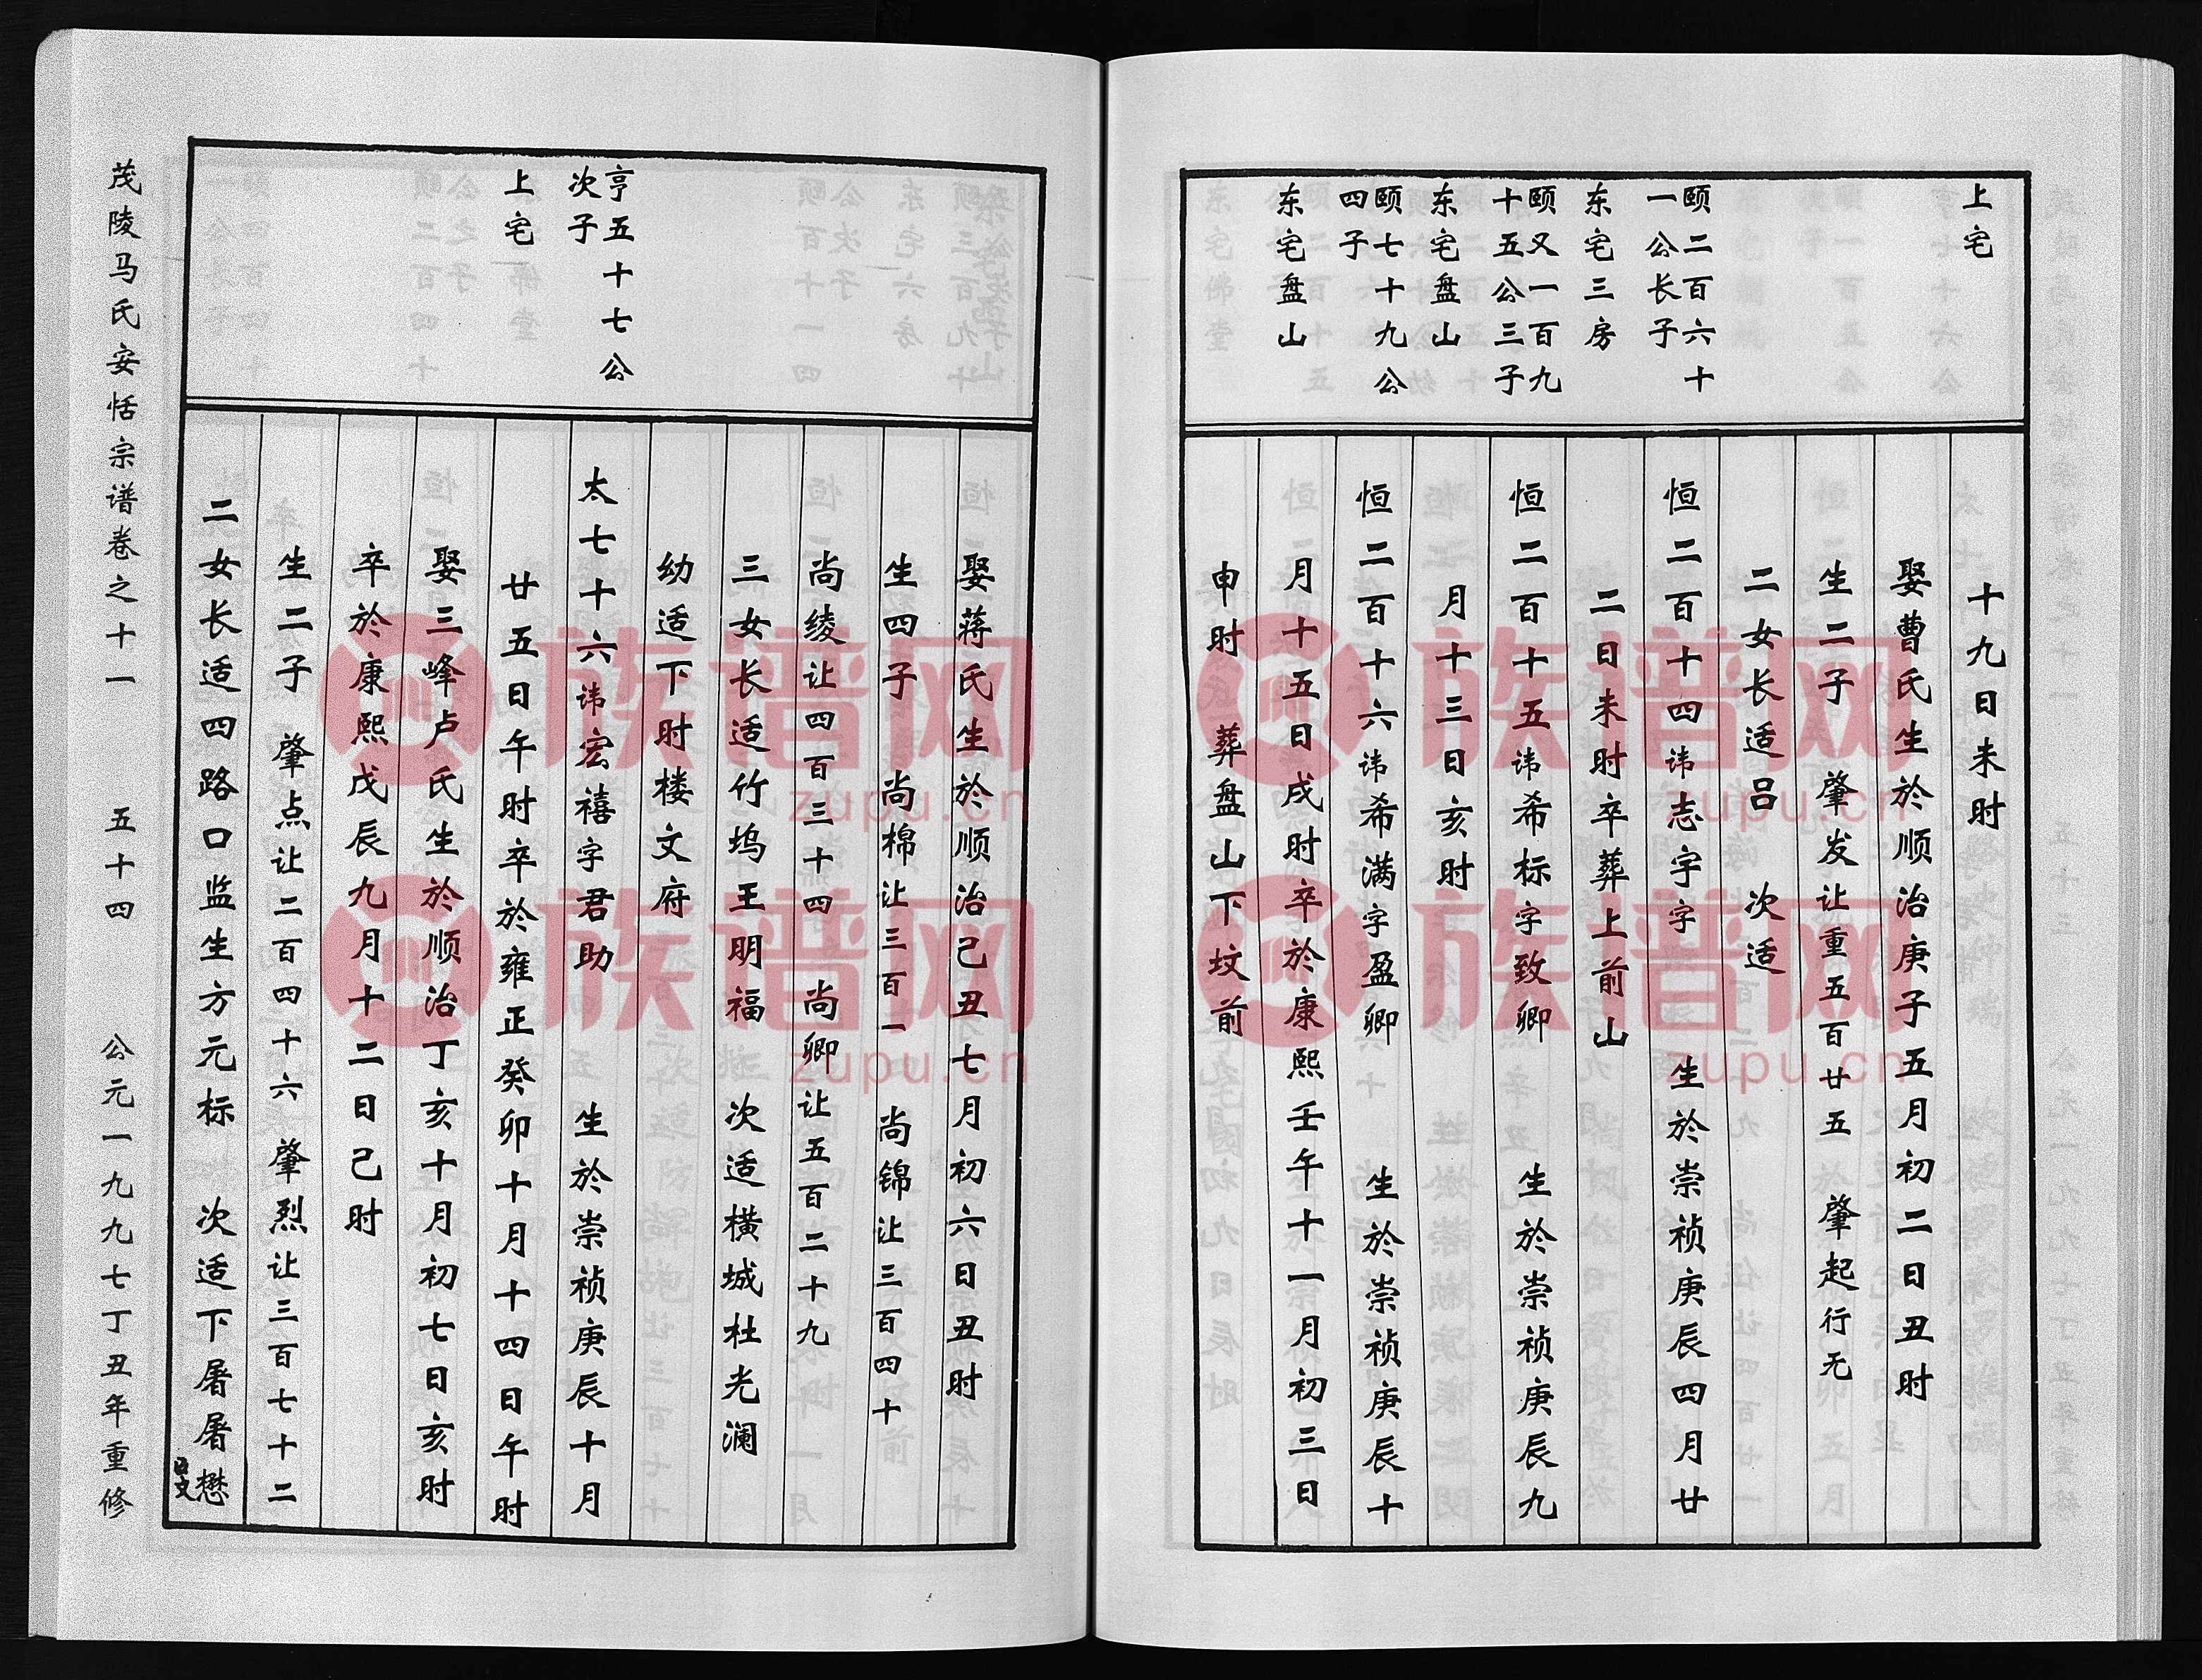 上宅
颐二百六十
一公长子
东宅三房
颐又一百九
十五公三子
东宅盘山
颐七十九公
四子
东宅盘山
十九日未时
娶曹氏生於顺治庚子五月初二日丑时
生二子 肇发让重五百廿五 肇起行无
二女长适吕 次适
恒二百十四讳志宇字 生於崇祯庚辰四月廿
二日未时卒葬上前山
恒二百十五讳希标字致卿 生於崇祯庚辰九
月十三日亥时
恒二百十六讳希满字盈卿 生於崇祯庚辰十
月十五日戌时卒於康熙壬午十一月初三日
申时 葬盘山下坟前
亨五十七公
次子
上宅
娶蒋氏生於顺治己丑七月初六日丑时
生四子 尚棉让三百一 尚锦让三百四十
尚绫让四百三十四 尚卿让五百二十九
三女长适竹坞王明福 次适横城杜光澜
幼适下时楼文府
太七十六讳宏禧字君助 生於崇祯庚辰十月
廿五日午时卒於雍正癸卯十月十四日午时
娶三峰卢氏生於顺治丁亥十月初七日亥时
卒於康熙戊辰九月十二日己时
生二子 肇点让二百四十六 肇烈让三百七十二
二女长适四路口监生方元标 次适下屠屠懋
文
茂陵马氏安恬宗谱卷之十一 五十四 公元一九九七丁丑年重修
族谱网
zupu.cn
族谱网
zupu.cn
族谱网
zupu.cn
族谱网
zupu.cn